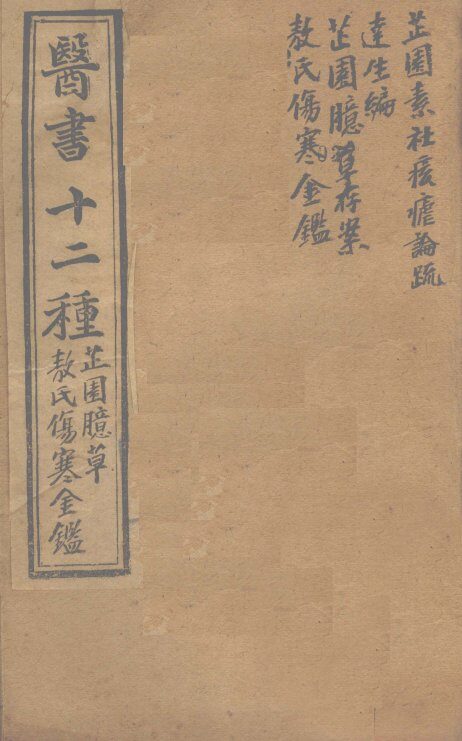 芷園素社痎瘧論疏
達生編
芷園臆草存案
敖氏傷寒金鑑
醫書十二種
芷園臆草
敖氏傷寒金鑑